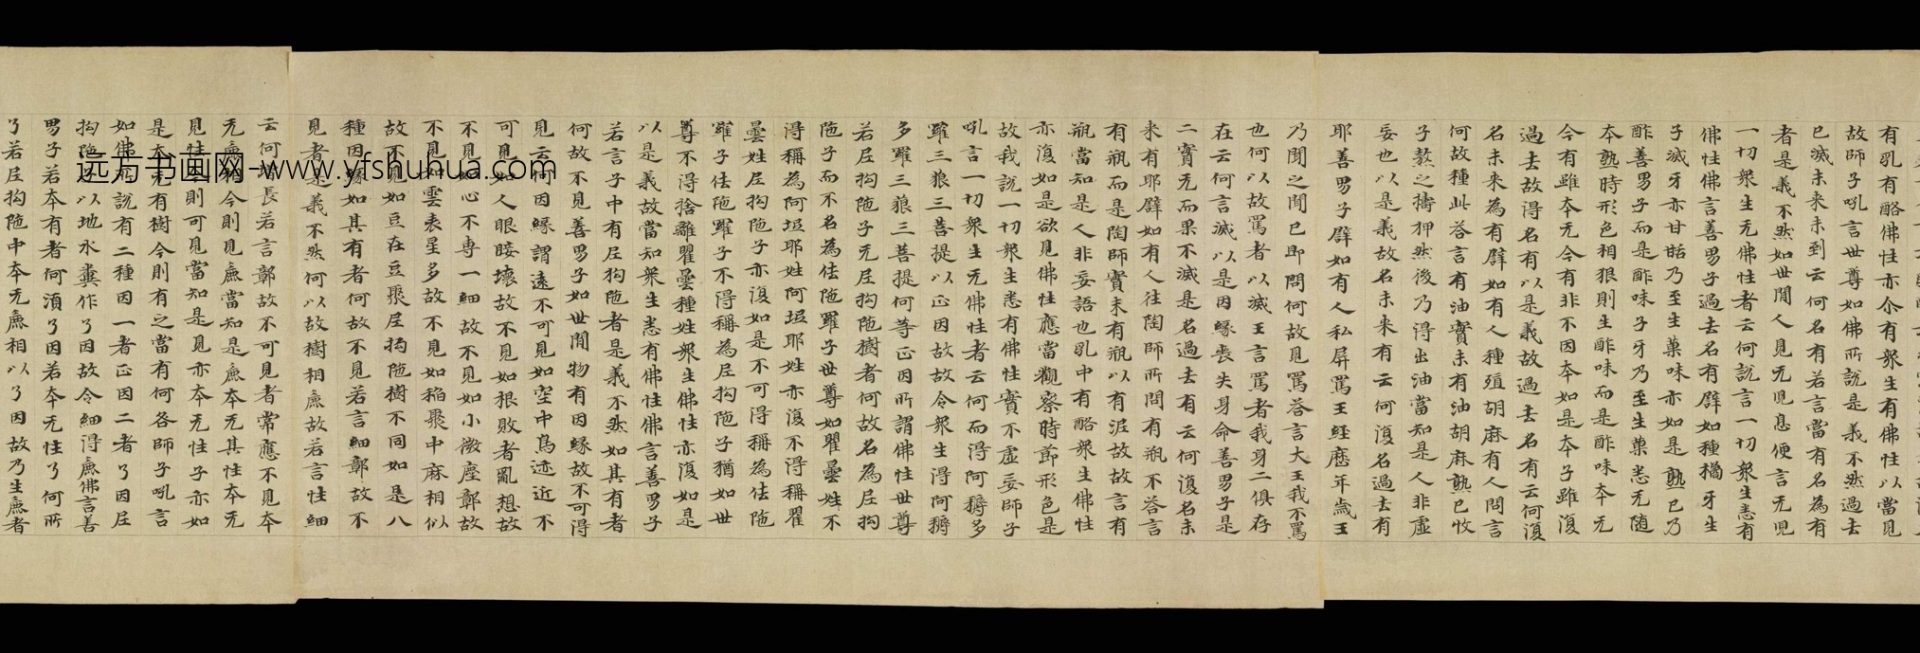 有乳有酪佛性亦尒有衆生有佛性以當見
故師子吼言世尊如佛所說是義不然過去
已滅未來未到云何名有若言當有名為有
者是義不然如世間人見无兒息便言无兒
一切衆生无佛性者云何說言一切衆生悉有
佛性佛言善男子過去名有辟如種橘牙生
子滅牙亦甘甛乃至生菓味亦如是熟已乃
酢善男子而是酢味子牙乃至生菓悉无随
本熟時形色相貌則生酢味而是酢味本无
今有雖本无今有非不因本如是本子雖復
過去故得名有以是義故過去名有云何復
名未来為有辟如有人種殖胡麻有人問言
何故種此荅言有油實未有油胡麻熟已收
子熬之擣押然後乃得出油當知是人非虛
妄也以是義故名未来有云何復名過去有
耶善男子辟如有人私屏罵王經歷年歲王
乃聞之聞已即問何故見罵荅言大王我不罵
也何以故罵者以滅王言罵者我身二俱存
在云何言滅以是因緣喪失身命善男子是
二實无而果不滅是名過去有云何復名未
来有耶辟如有人往陶師所問有瓶不荅言
有瓶而是陶師實未有瓶以有泥故故言有
瓶當知是人非妄語也乳中有酪衆生佛性
亦復如是欲見佛性應當觀察時節形色是
故我說一切衆生悉有佛性實不虛妄師子
吼言一切衆生无佛性者云何而得阿耨多
羅三藐三菩提以正因故故令衆生得阿耨
多羅三藐三菩提何等正因所謂佛性世尊
若尼拘陁子无尼拘陁樹者何故名為尼拘
陁子而不名為佉陁羅子世尊如瞿曇姓不
得稱為阿坻耶姓阿坻耶姓亦復不得稱瞿
曇姓尼拘陁子亦復如是不可得稱為佉陁
羅子佉陁羅子不得稱為尼拘陁子猶如世
尊不得捨離瞿曇種姓衆生佛性亦復如是
以是義故當知衆生悉有佛性佛言善男子
若言子中有尼拘陁者是義不然如其有者
何故不見善男子如世間物有因緣故不可得
見云何因緣謂遠不可見如空中鳥迹近不
可見如人眼睫壞故不見如根敗者亂想故
不見如心不専一細故不見如小微塵鄣故
不見如雲表星多故不見如稲聚中麻相似
故不見如豆在豆聚尼拘陁樹不同如是八
種因緣如其有者何故不見若言細鄣故不
見者是義不然何以故樹相麁故若言性細
云何增長若言鄣故不可見者常應不見本
无麁相今則見麁當知是麁本无其性本无
見性今則可見當知是見亦本无性子亦如
是本无有樹今則有之當有何咎師子吼言
如佛所說有二種因一者正因二者了因尼
拘陁子以地水糞作了因故令細得麁佛言善
男子若本有者何湏了因若本无性了何所
了若尼拘陁中本无麁相以了因故乃生麁者
远方书画网-www.yfshuhua.com